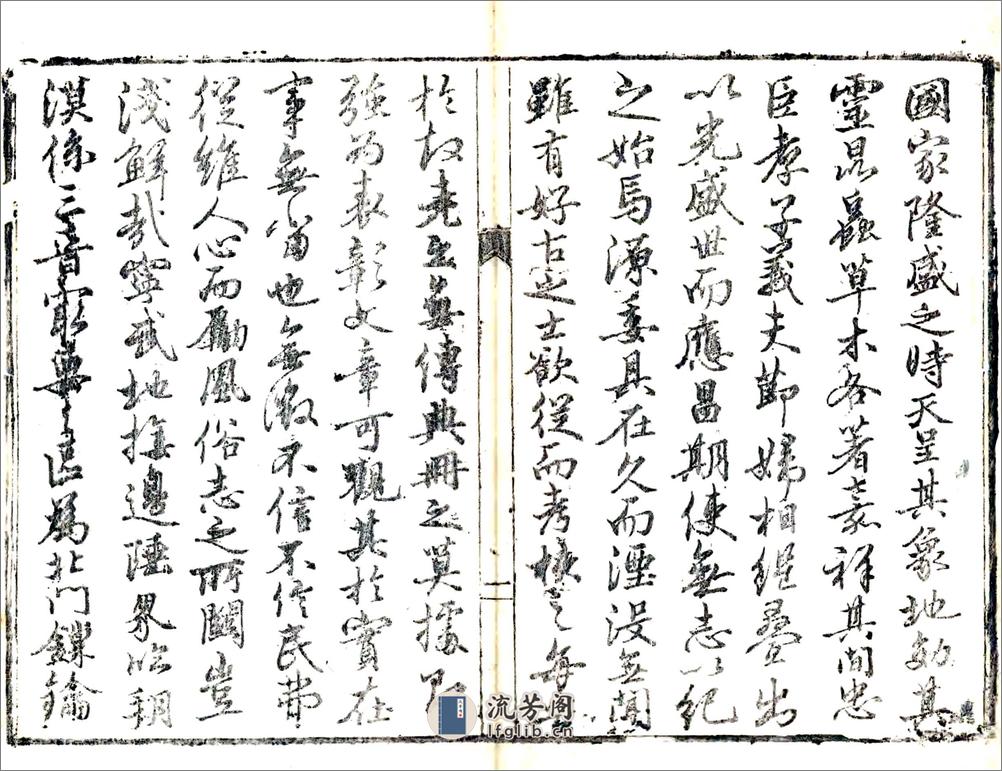 國家隆盛之時天呈其象地效其
靈昆蟲草木各著嘉祥其間忠
臣孝子義夫節婦相繼疊出
以光盛世而應昌期使無志以紀
之始焉源委具在久而湮没無聞
雖有好古之士欲從而考據之每
於故老之無傳典冊之莫據即
強為表彰文章可觀其於實在
事無當也無徵不信不信民弗
從維人心而勵風俗志之所關豈
淺鮮哉寧武地接邊陲界臨朔
漠係三晉之區為北門鎖鑰
流芳阁
lfglib.cn